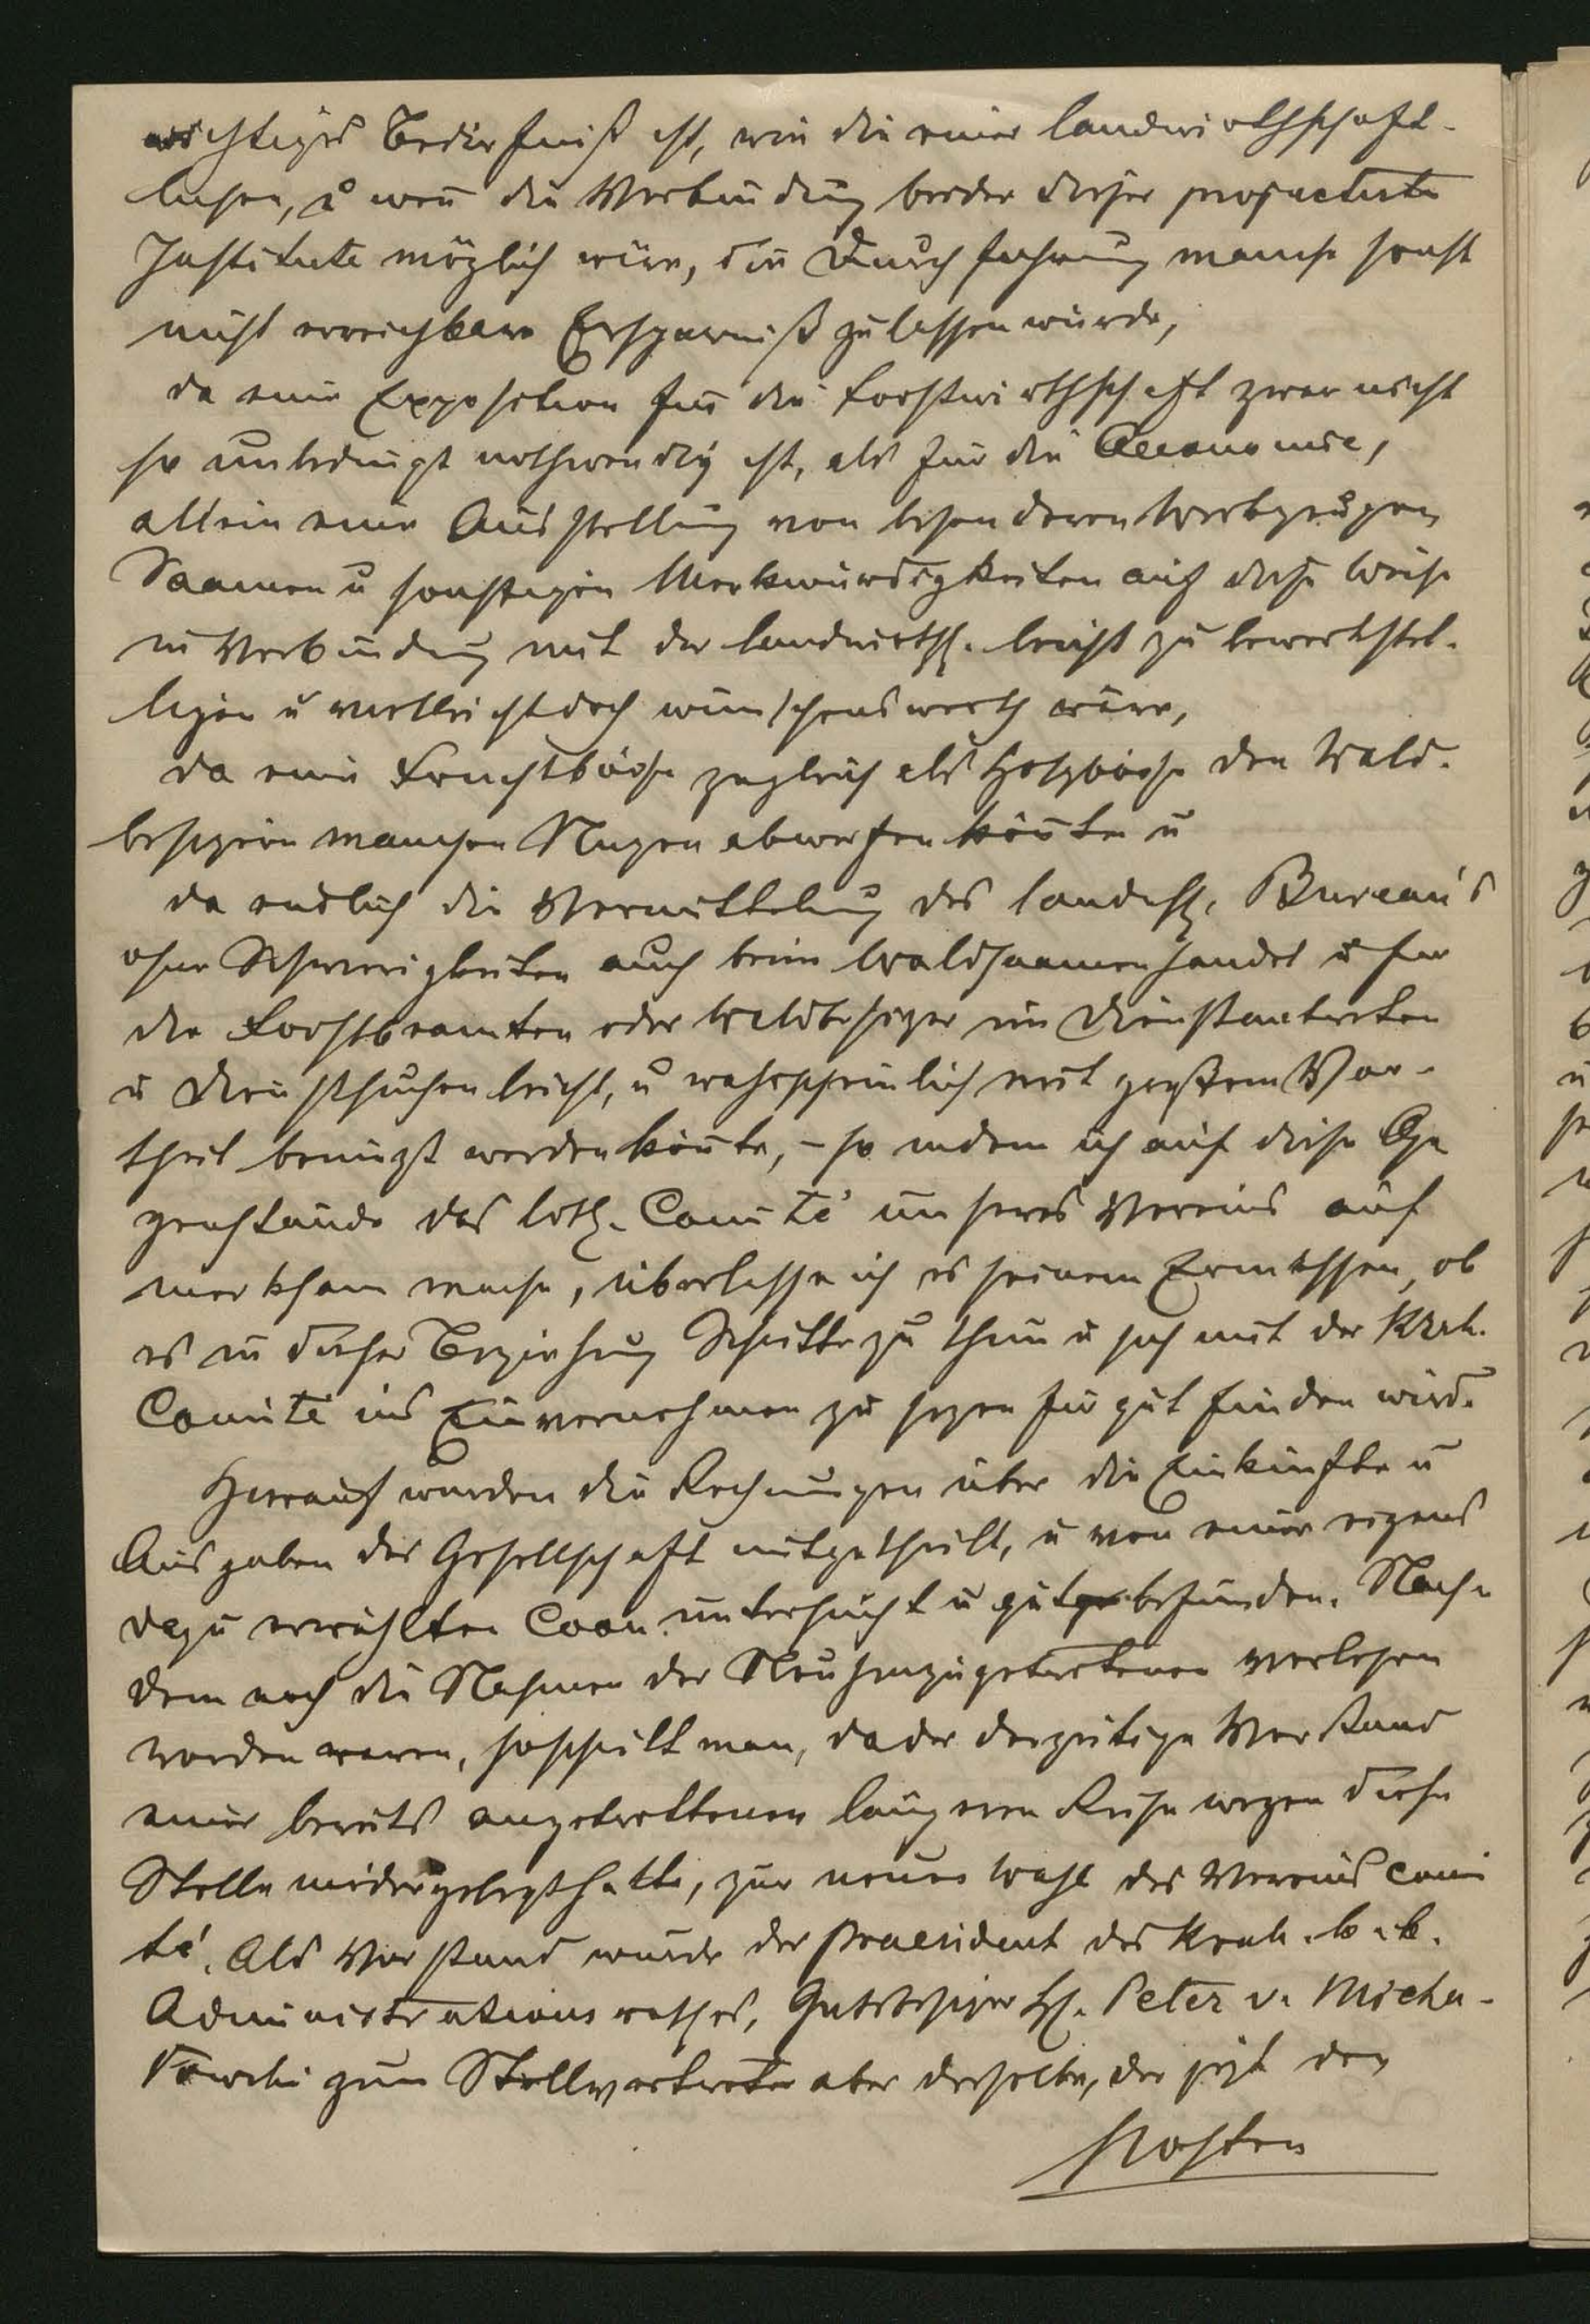 wichtiges Bedürfniß ist, wie die einer landwirthschaft-
lichen, u wen̄ die Verbindung beider dieser projectirte
Institute möglich wäre, die Durchführung manche sonst
nicht erreichbare Ersparniß zulassen würde,
da eine Exposition für die Forstwirthschaft zwar nicht
so unbedingt nothwendig ist, als für die Oeconomie,
allein eine Ausstellung von besonderen Werkzeugen
Saamen u sonstigen Merkwürdigkeiten auf diese Weise
in Verbindung mit der landwirthsch. leicht zu bewerkstel-
ligen u vielleicht doch wünschenswerth wäre,
da eine Fruchtbörse zugleich als Holzbörse den Wald-
besitzern manchen Nutzen abwerfen kön̄te u
da endlich die Vermittelung des landwsch. Bureau's
ohne Schwierigkeiten auch beim Waldsaamenhandel u für
die Forstbeamten oder Waldbesitzer im Dienstantreten
u Dienstsuchen leicht, u wahrscheinlich mit großem Vor-
theil benützt werden kön̄te, – so indem ich auf diese Ge
genstände das löth. Comité unseres Vereins auf
merksam mache, überlasse ich es seinem Ermessen, ob
es in dieser Beziehung Schritte zu thun u sich mit der Krak.
Comité ins Einvernehmen zu setzen für gut finden wird.
Hierauf wurden die Rechnungen über die Einkünfte u
Ausgaben der Gesellschaft mitgetheilt, u von einer eigens
dazu erwählten Com. untersucht u gut befunden. Nach-
dem noch die Nahmen der Neuhinzugetretenen verlesen
worden waren, schritt man, da der derzeitige Vorstand
einer bereits angetrettenen längeren Reise wegen diese
Stelle niedergelegt hatte, zur neuen Wahl des Vereinscomi
té. Als Vorstand wurde der Praesident des Krak. k. k.
Administrationsrathes, Gutsbesitzer H. Peter v. Micha-
lowski zum Stellvertreter aber derselbe, der jetzt den
Posten